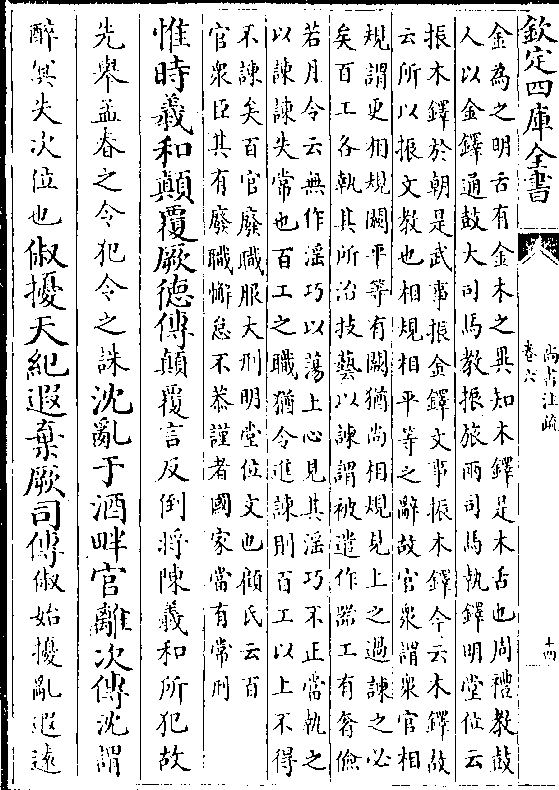 欽定四庫全書
尚書注疏
卷六
十四
金為之明舌有金木之異知木鐸是木舌也周禮教鼓
人以金鐸通鼓大司馬教振旅兩司馬執鐸明堂位云
振木鐸於朝是武事振金鐸文事振木鐸今云木鐸故
云所以振文教也相規相平等之辭故官衆謂衆官相
規謂更相規闕平等有闕猶尚相規見上之過諫之必
矣百工各執其所治技藝以諫謂被遣作器工有奢儉
若月令云無作淫巧以蕩上心見其淫巧不正當執之
以諫諫失常也百工之職猶令進諫則百工以上不得
不諫矣百官廢職服大刑明堂位文也顧氏云百
官衆臣其有廢職懈怠不恭謹者國家當有常刑
惟時羲和顛覆厥德傳顛覆言反倒將陳羲和所犯故
先舉孟春之令犯令之誅沈亂于酒畔官離次傳沈謂
醉冥失次位也俶擾天紀遐棄厥司傳俶始擾亂遐遠